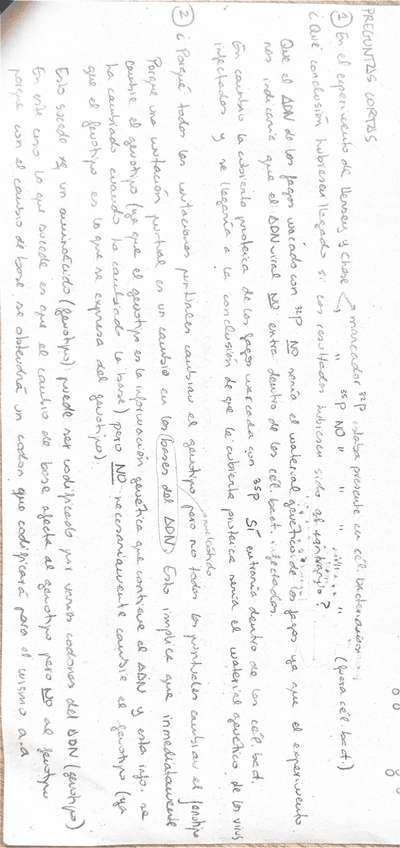 PREGUNTAS CORTAS
① En el experimento de Hersey y Chase < marcador ³²P estaba presente en cél. bacterianas
" ³⁵P NO " " " " (fuera cél. bact.)
¿Qué conclusión hubiesen llegado si los resultados hubiesen sido al contrario?
Que el ADN de los fagos marcado con ³²P NO sería el material genético de los fagos ya que el experimento
nos indicaría que el ADN viral NO entra dentro de las cél. bact. infectadas.
En cambio la cubierta proteica de los fagos marcada con ³⁵P SÍ entraría dentro de las cél. bact.
infectadas y se llegaría a la conclusión de que la cubierta proteica sería el material genético de los virus
② ¿Porqué todas las mutaciones puntuales cambian el genotipo pero no todas las puntuales cambian el fenotipo
Porque una mutación puntual es un cambio en las bases del ADN. Esto implica que inmediatamente
cambie el genotipo (ya que el genotipo es la información genética que contiene el ADN y esta info. se
ha cambiado cuando ha cambiado la base) pero NO necesariamente cambie el fenotipo (ya
que el fenotipo es lo que se expresa del genotipo).
Esto sucede xq un aminoácido (fenotipo) puede ser codificado por varios codones del ADN (genotipo)
En este caso lo que sucede es que el cambio de base afecta al genotipo pero NO al fenotipo
porque con el cambio de base se obtendrá un codon que codificará para el mismo a.a